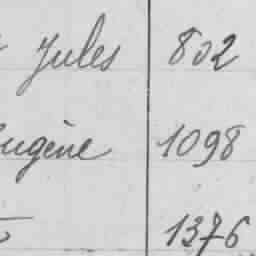 Jules 802
Eugène 1098
1376